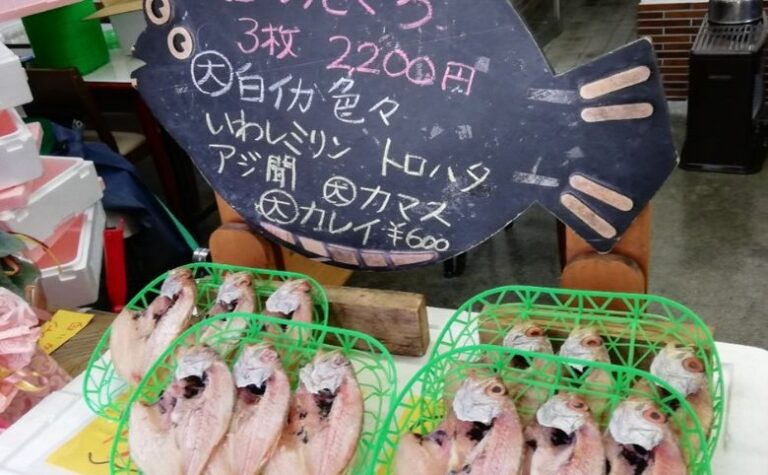 3枚 2200円
大白イカ色々
いわしミリン トロハタ
アジ開 大カマス
大カレイ¥600